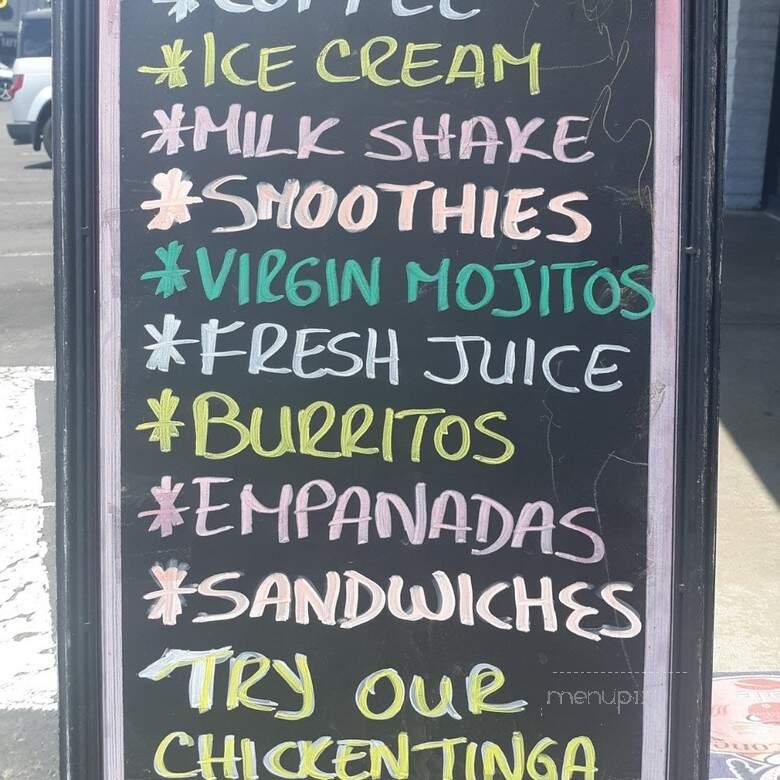 *COFFEE
*ICE CREAM
*MILK SHAKE
*SMOOTHIES
*VIRGIN MOJITOS
*FRESH JUICE
*BURRITOS
*EMPANADAS
*SANDWICHES
TRY OUR
menupix
CHICKEN TINGA